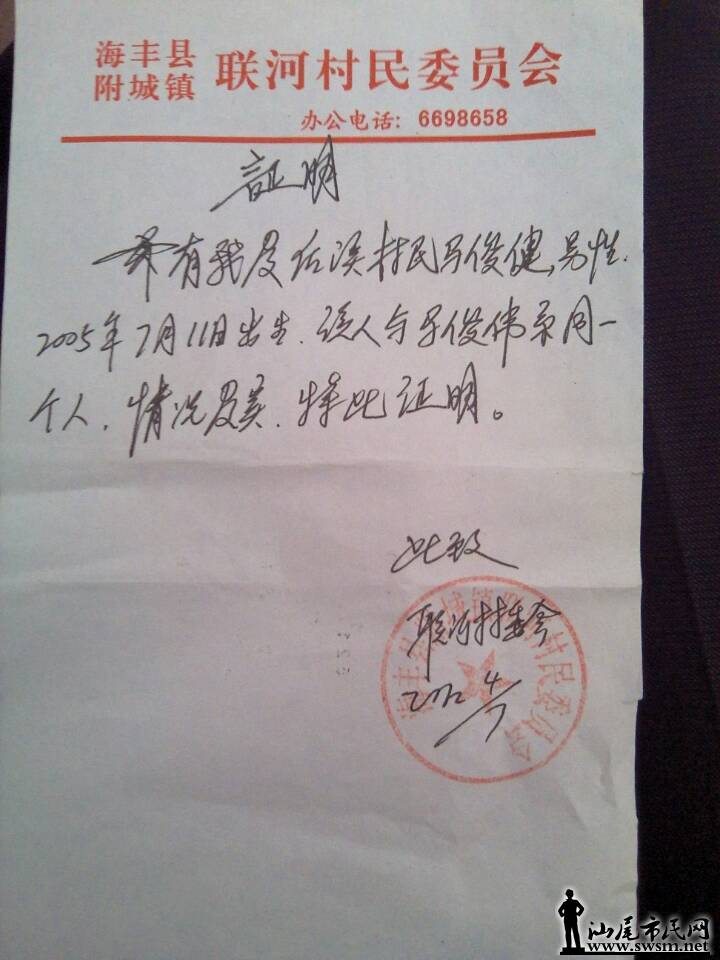 海丰县
附城镇 联河村民委员会
办公电话: 6698658
証明
有我后溪村民马俊健,男性.
2005年7月11日出生.该人与马俊伟系同一
个人.情况及实.特此证明。
此致
联河村委会
4/7
海丰县附城镇联河村民委员会
汕尾市民网
www.swsm.net